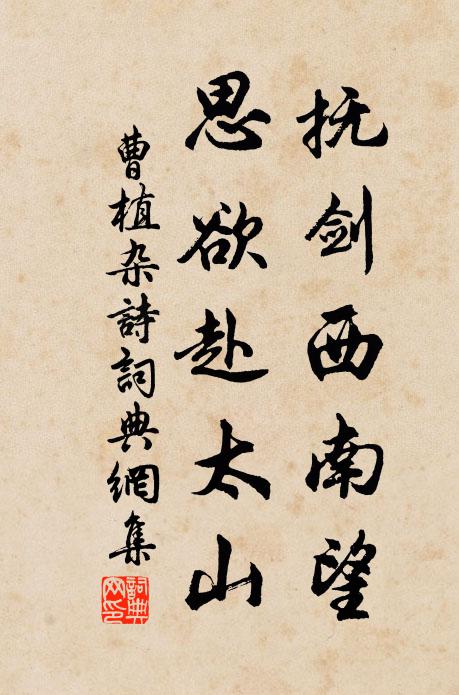 抚剑西南望
思欲赴太山
曹植杂詩詞典網集
詞典
网印